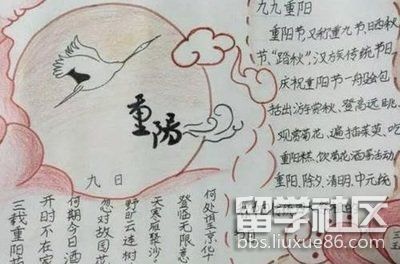 重阳
九日
九九重阳
重阳节又称重九节晒秋
节“踏秋”,汉族传统节日
庆祝重阳节一般会包
括出游赏秋、登高远眺、
观赏菊花、遍插茱萸、吃
重阳糕、饮菊花酒等活动
重阳、除夕、清明、中元统
何处望京华
登临无限意
天寒雁聚沙
野旷云连树
忽对故园花
何期今日酒
开时不在家
三载重阳菊
留学社区
bbs.liuxue86.com